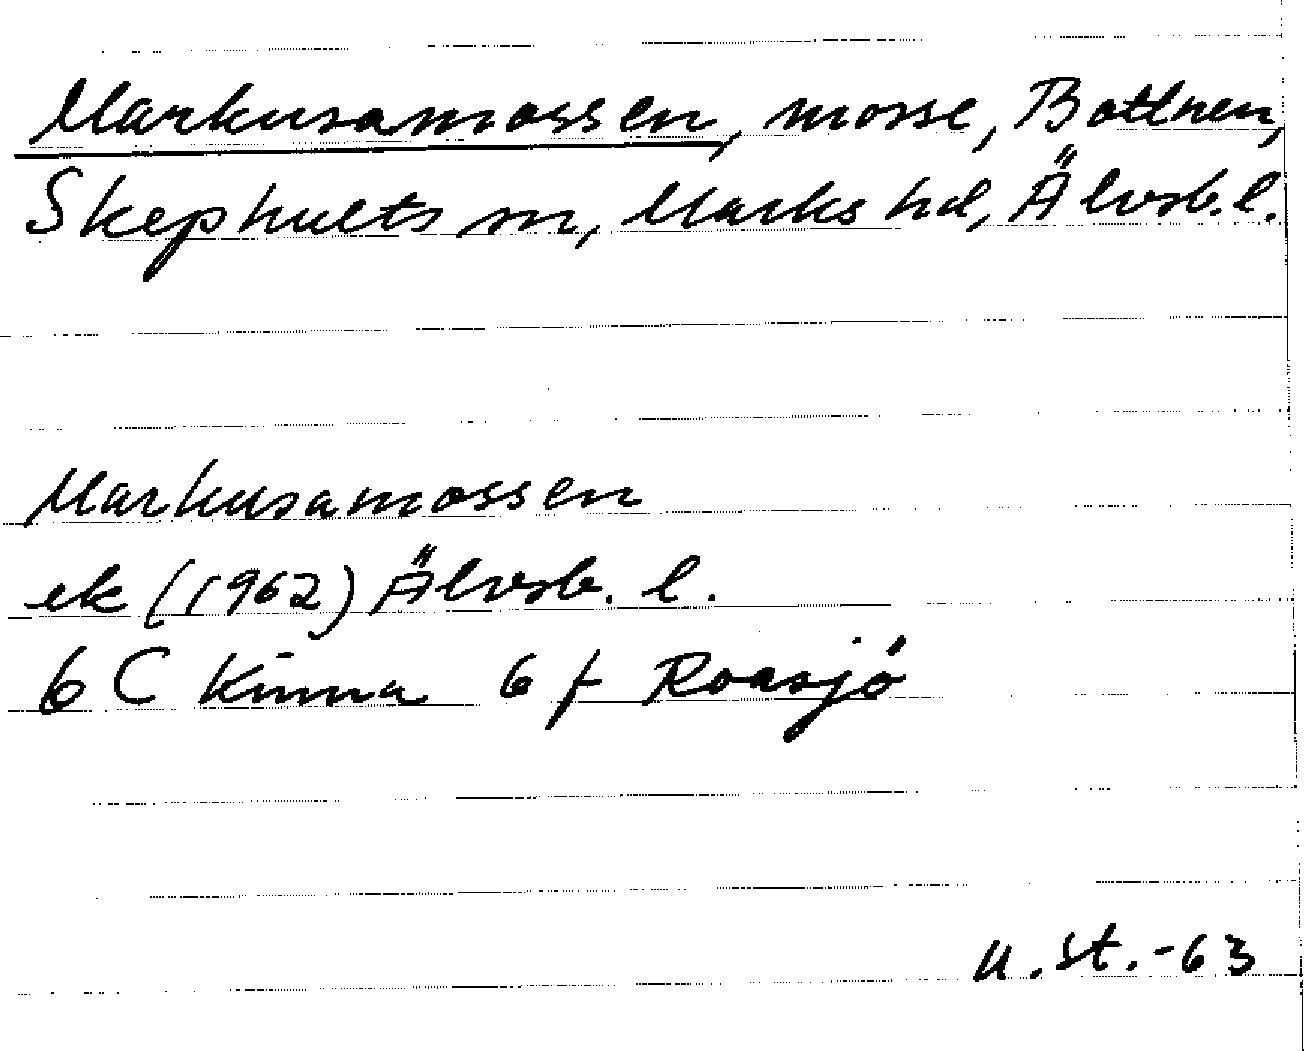 Markusamossen, mosse, Bottnen,
Skephults sn, Marks hd, Älvsb. l.
Markusamossen
ek (1962) Älvsb. l.
6 C Kinna 6 f Roasjö
u.st.-63